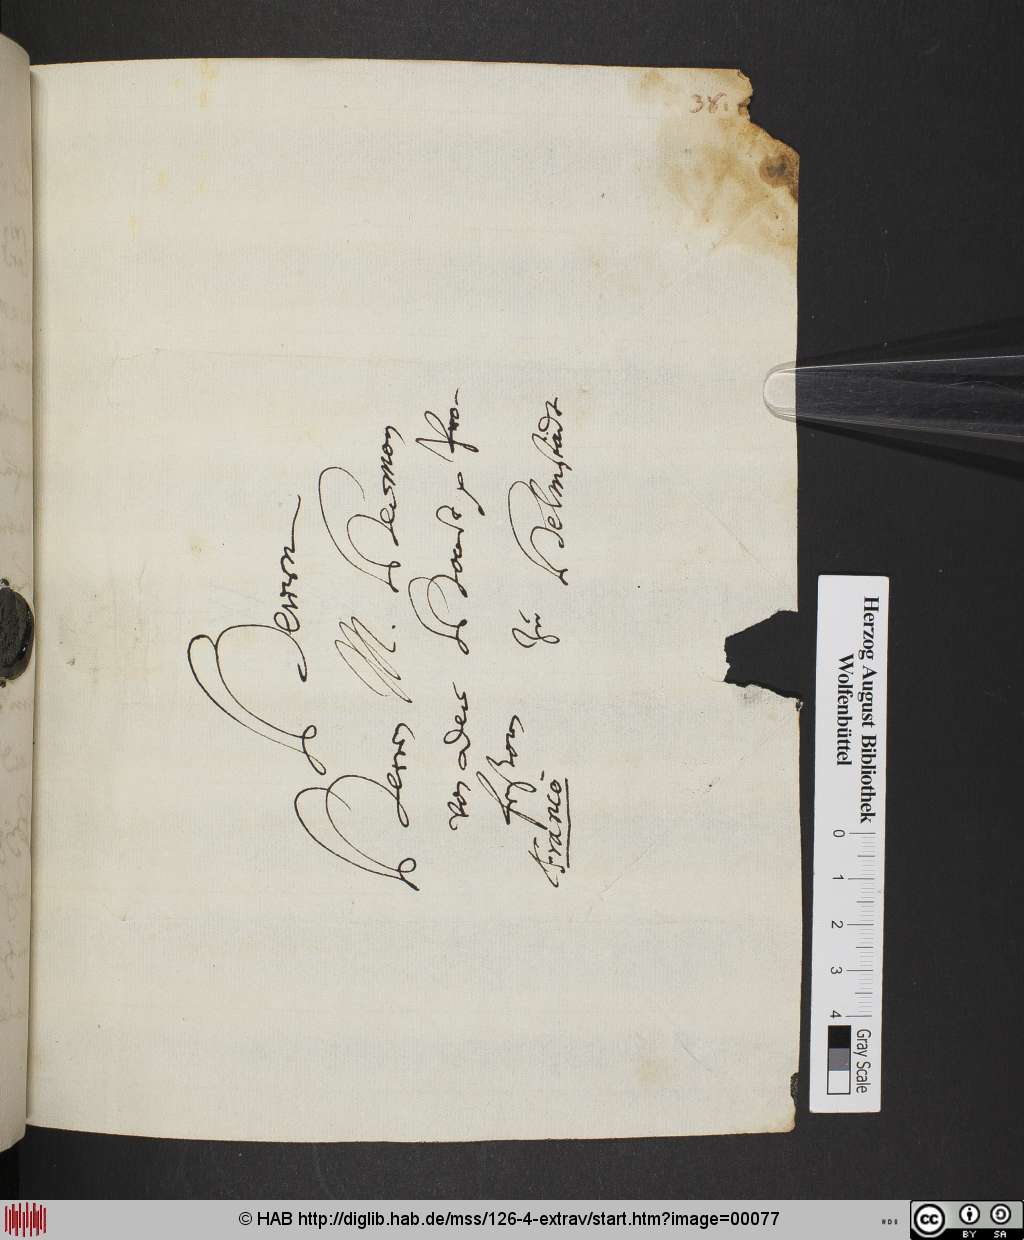 38.
Herren
Herrn M. Herman
von der Hardt p pro-
feßorn zu Helmstädt
Franco
Herzog August Bibliothek
Wolfenbüttel
0 1 2 3 4
Gray Scale
© HAB http://diglib.hab.de/mss/126-4-extrav/start.htm?image=00077
cc BY SA